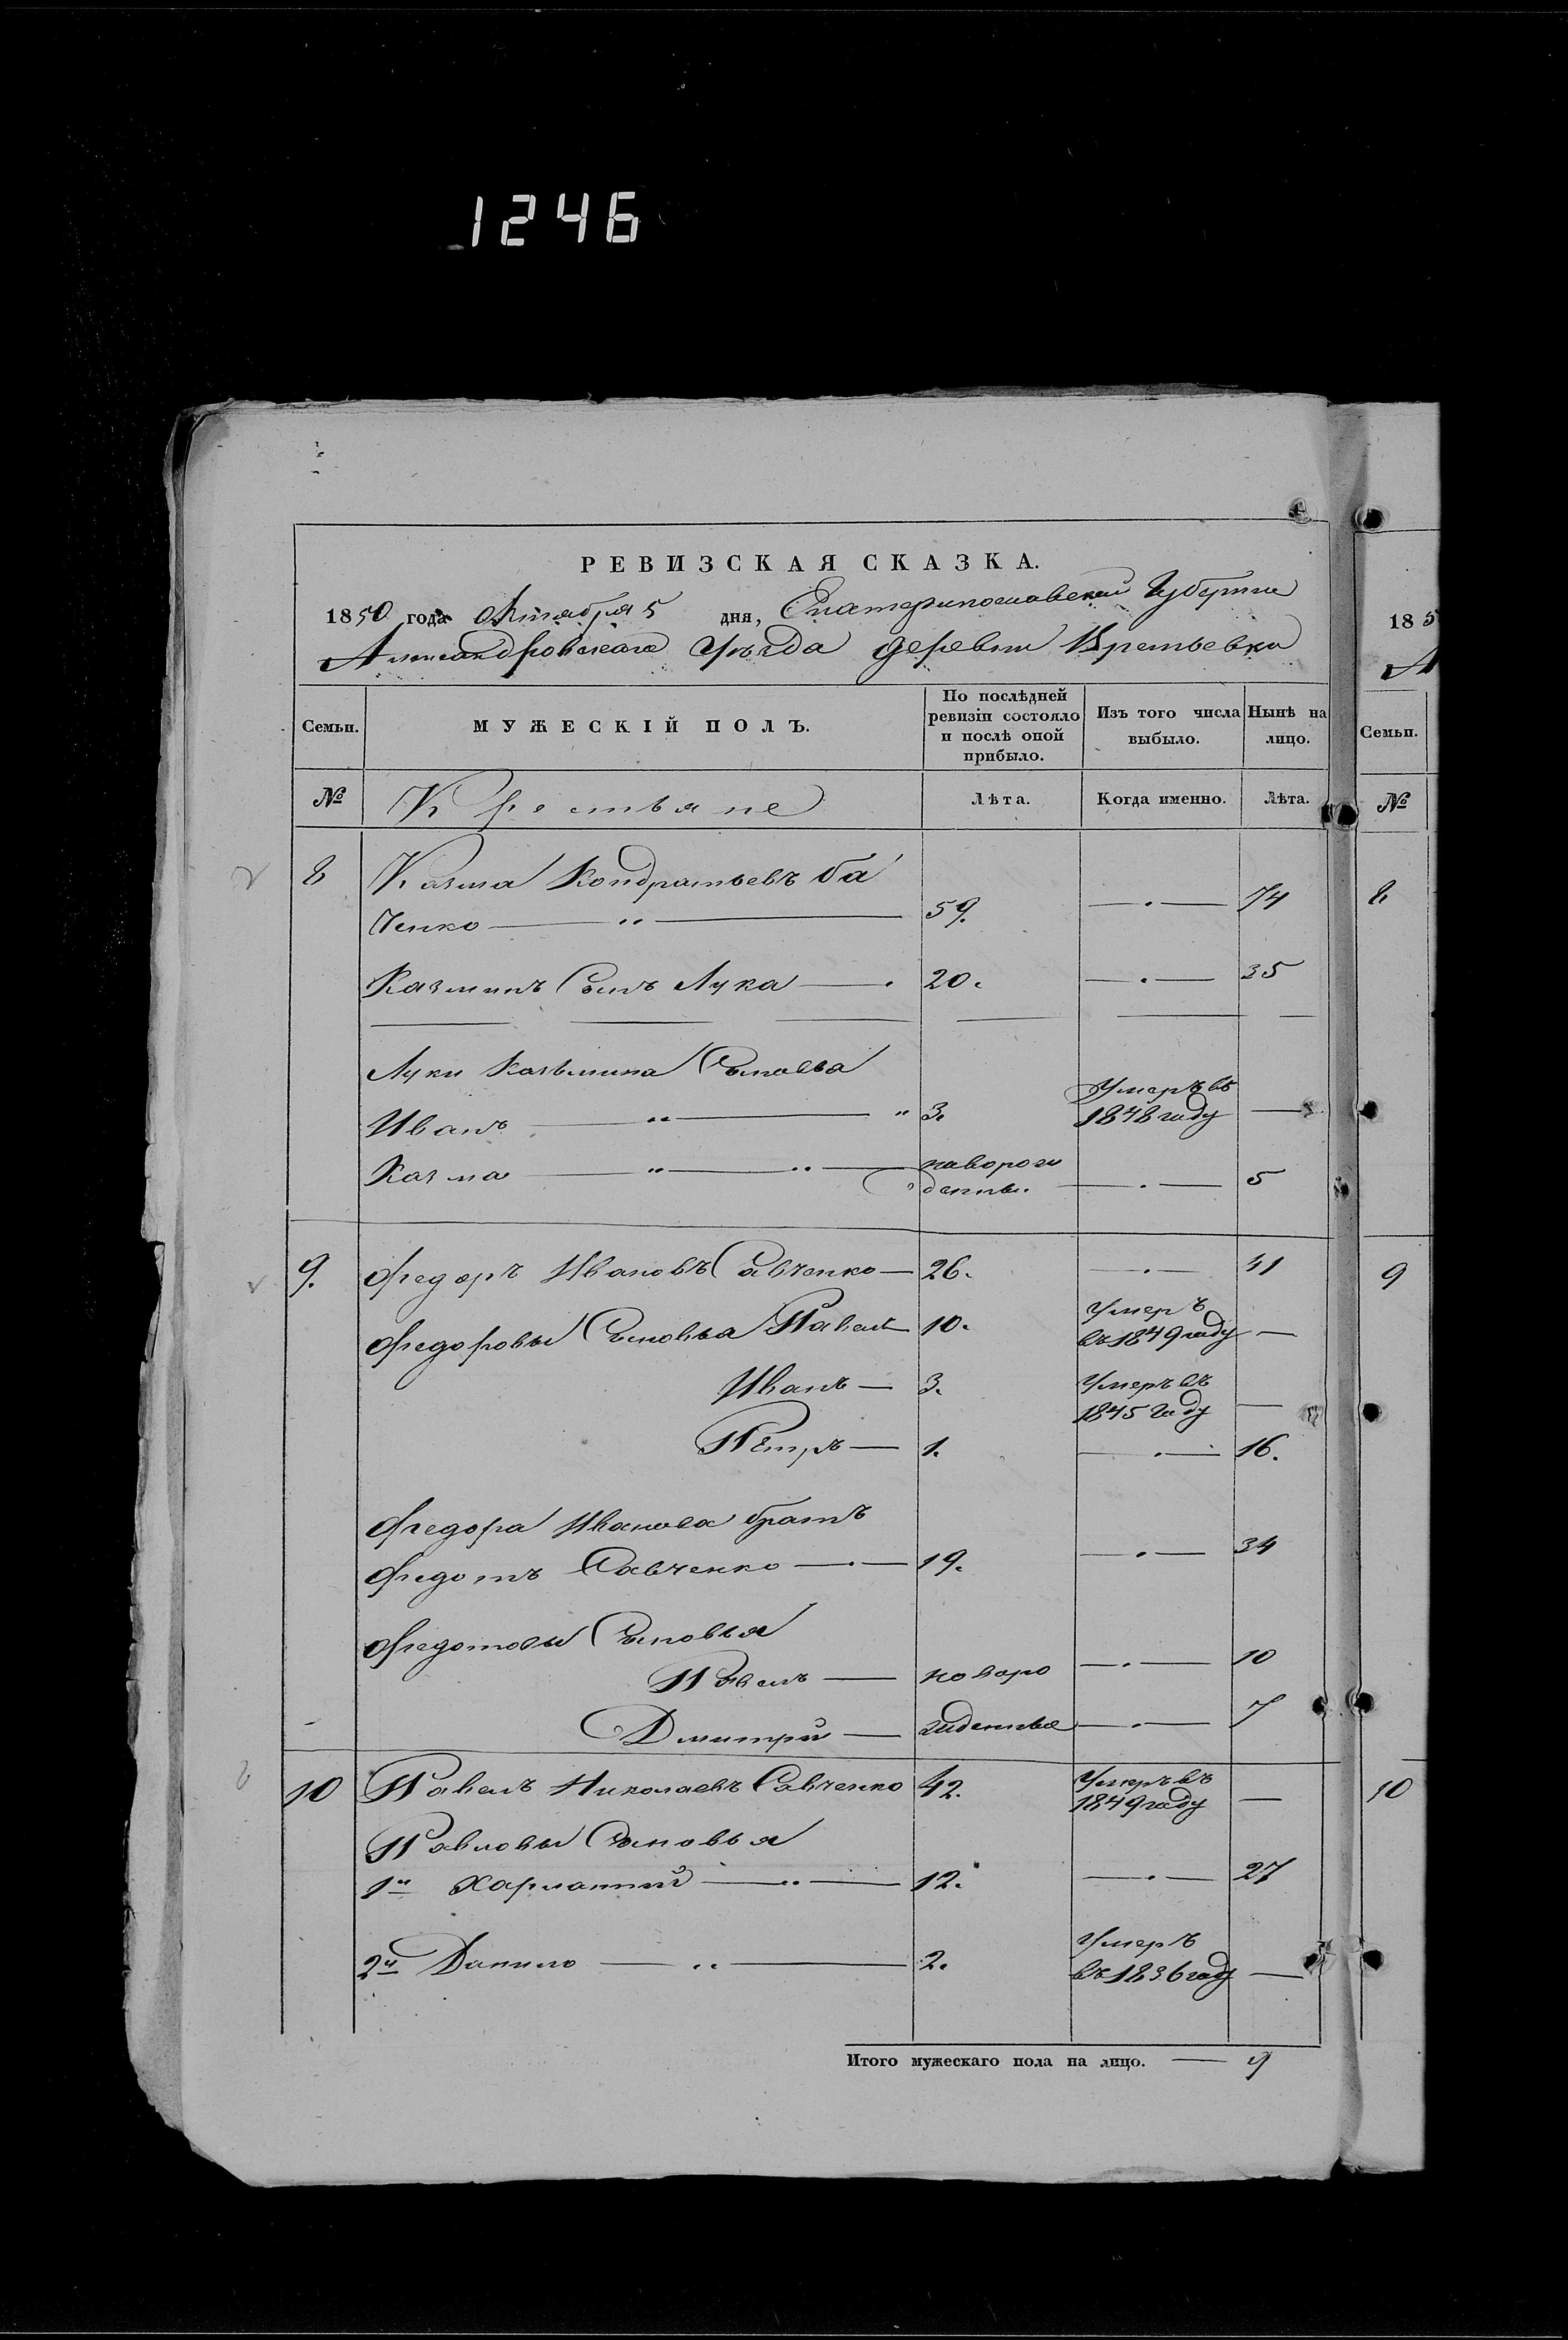 1246
РЕВИЗСКАЯ СКАЗКА.
1850 года Октября 5 дня, Екатеринославской Губернии
Александровскаго Уѣзда деревни
Семьи. МУЖЕСКІЙ ПОЛЪ. По послѣдней ревизіи состояло и послѣ оной прибыло. Изъ того числа выбыло. Ныне на лицо.
№ Крестьяне Лѣта. Когда именно. Лѣта.
8 Казма Кондратьевъ Ба
ченко 59. 74
Казминъ Сынъ Лука 20. 35
Луки Казьмина Сыновья
Иванъ 3. Умеръ въ 1848 году
Казма новорож денны. 5
9. Федоръ Ивановъ Савченко 26. 41
Федоровы Сыновья Павелъ 10. Умеръ въ 1849 году
Иванъ 3. Умеръ въ 1845 году
Петръ 1. 16.
Федора Иванова братъ
Федотъ Савченко 19. 34
Федотовы Сыновья
Павелъ новоро 10
Дмитрій жденные 7
10 Павелъ Николаевъ Савченко 42. Умеръ въ 1849 году
Павловы Сыновья
1й Харлампий 12. 27
2й Данило 2. Умеръ въ 1836 году
Итого мужескаго пола на лицо. 9
185
А
Семьи.
№
8
9
10